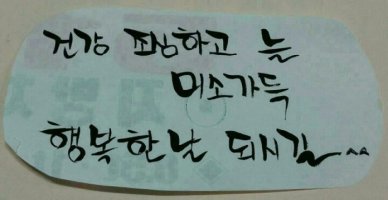 건강 조심하고 늘
미소가득
행복한날 되시길~^^